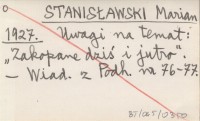 STANISŁAWSKI Marian
1927. Uwagi na temat:
"Zakopane dziś i jutro".
- Wiad. z Podh. nr 76-77.